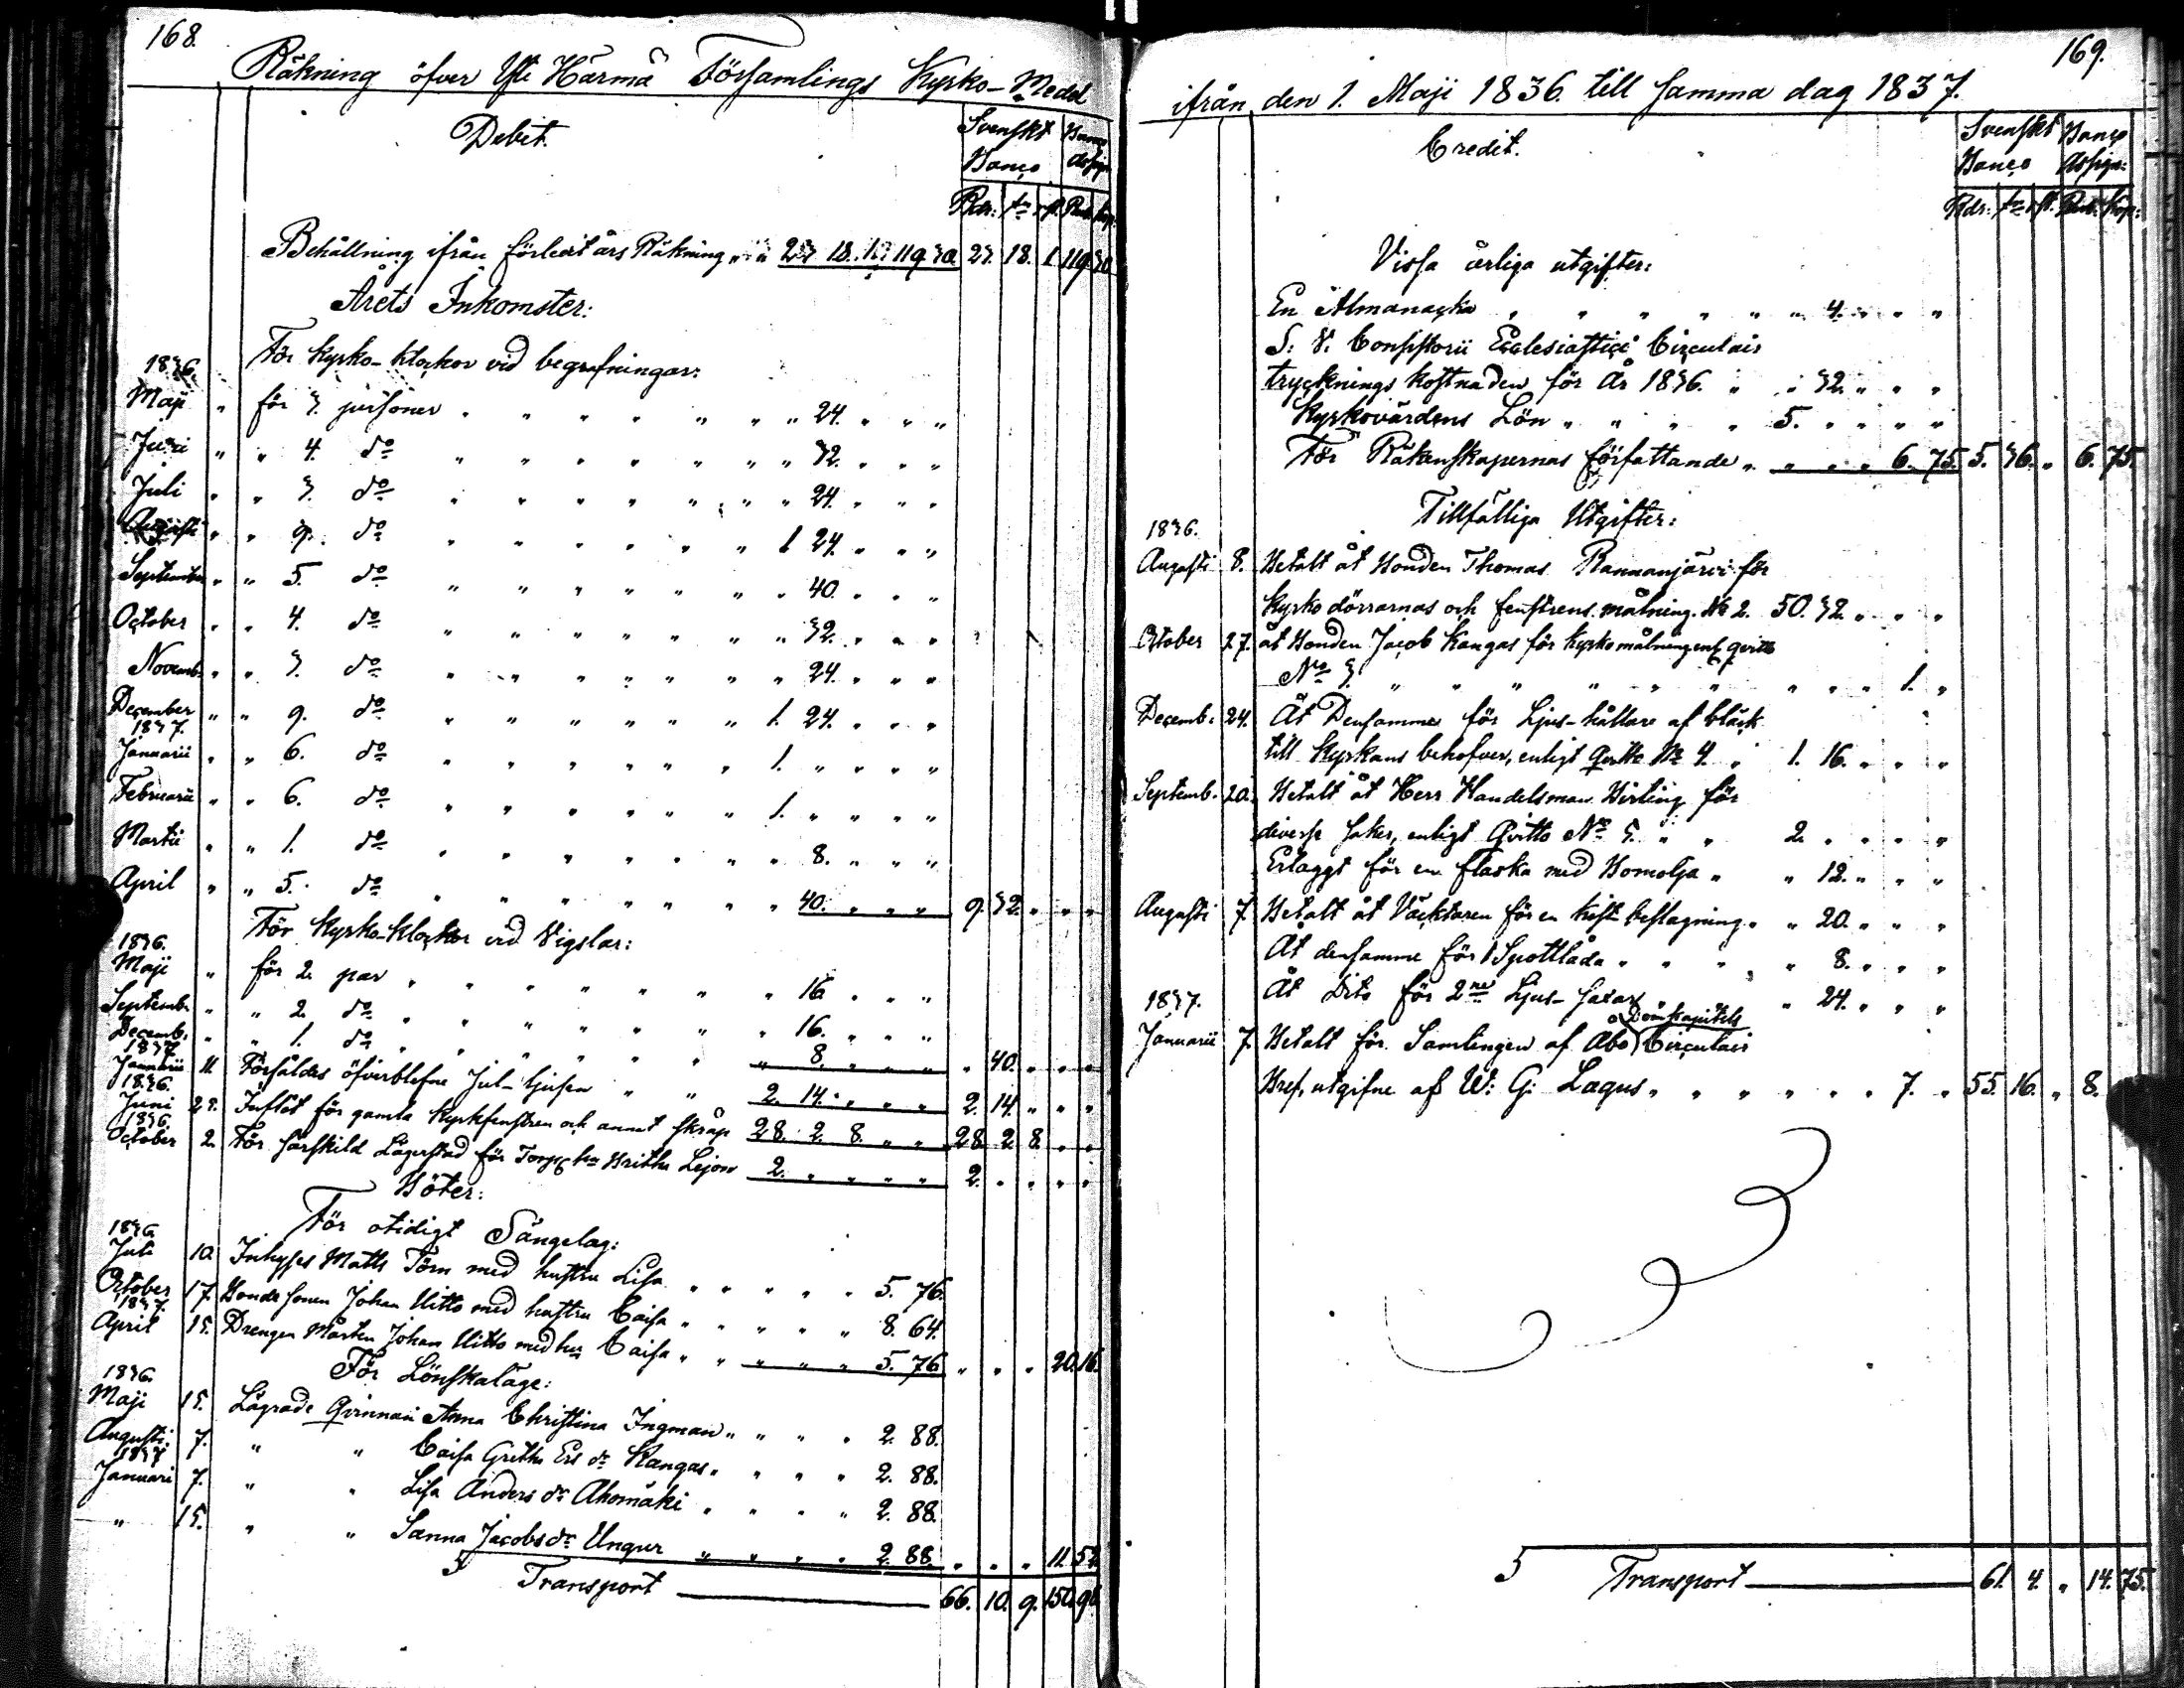 168.
Räkning öfver Yli Härmä Församlings Kyrko-Medel
Debit.
Svenskt Banco
Banco Assign.
Rdr: sk. rst. Rub. kop:
Behållning ifrån förledit års Räkning " " 23 18. 1. 119 30. 23. 18. 1. 119. 30
Årets Inkomster:
För Kyrko-klockor vid begrafningar:
1836.
Maji " för 3. personer " " " " " " " 24. " " "
Juni " " 4. do " " " " " " " 32. " " "
Juli " " 3. do " " " " " " " 24. " " "
Augusti " " 9. do " " " " " " 1 24. " " "
September " " 5. do " " " " " " " 40. " " "
October " " 4. do " " " " " " " 32. " " "
Novemb. " " 3. do " " " " " " " 24. " " "
December " " 9. do " " " " " " 1. 24. " " "
1837.
Januarii " " 6. do " " " " " " 1. " " " "
Februarii " " 6. do " " " " " " 1. " " " "
Martii " " 1. do " " " " " " " 8. " " "
April " " 5. do " " " " " " " 40. " " " 9. 32. " " "
För Kyrko-klockor vid Vigslar:
1836.
Maji " för 2. par " " " " " " " 16. " " "
Septemb. " " 2. do " " " " " " " 16. " " "
Decemb. " " 1. do " " " " " " " 8. " " " " 40. " " "
1837
Januarii 11 Försåldes öfverblefne Jul-ljusen " " 2. 14. " " " 2. 14. " " "
1836.
Juni 23. Influtit för gamla Kyrkfenstren och annat skräp 28. 2. 8. " " 28. 2 8. " "
1836.
October 2. För särskild Lägerstad för Torp. hu Britha Lejon 2. " " " " 2. " " " "
Böter:
För otidigt Sängelag:
1836
Juli 10. Inhyses Matts Törn med hustru Lisa " " " " " 5. 76.
October 17. Bonde sonen Johan Uitto med hustru Caisa " " " " " 8. 64.
1837.
April 15. Drengen Mårten Johan Uitto med hu Caisa " " " " " 5. 76 " " " 20. 16.
För Lönskaläge:
1836.
Maji 15. Lägrade Qvinnan Anna Christina Ingman " " " " 2. 88.
Augusti. 7. " " Caisa Gretha Ers dr Kangas " " " " 2. 88.
1837
Januari 7. " " Lisa Anders dr Ahomäki " " " " 2. 88.
" 15. " " Sanna Jacobs dr Ungur " " " " 2. 88. " " " 11. 52
Transport 66. 10. 9. 150. 98.
169.
ifrån den 1. Maji 1836. till samma dag 1837.
Credit.
Svenskt Banco
Banco Assign:
Rdr: sk. rst. Rub. kop:
Vissa årliga utgifter:
En Almanacka " " " " " " 4. " " "
S: V: Consistorii Ecclesiastici Circulair
trycknings kostnaden för År 1836. " " 32. " " "
Kyrkovärdens Lön " " " " 5. " " " "
För Räkenskapernas författande " " " " 6. 75. 5. 36. " 6. 75.
Tillfälliga Utgifter:
1836.
Augusti 8. Betalt åt Bonden Thomas Rannanjärvi för
Kyrko dörrarnas och fenstrens målning. No 2. 50. 32. " " "
October 27. åt Bonden Jacob Kangas för kyrko målning enl. qvitto
No 3. " " " " " " " " " 1. "
Decemb. 24. Åt Densamme för Ljus-hållare af bläck
till Kyrkans behofver, enligt Qvitto No 4. " 1. 16. " " "
Septemb. 20. Betalt åt Herr Handelsman Birling för
diverse saker, enligt Qvitto No 5. " " 2. " " " "
Erlaggt för en flaska med Bomolja " " 12. " " "
Augusti 7. Betalt åt Väcktaren för en kist beslagning. " 20. " " "
Åt densamme för 1 Spottlåda " " " " 8. " " "
Åt Dito för 2ne Ljus-saxar " 24. " " "
1837.
Domkapitels
Januarii 7. Betalt för Samlingen af Åbo Circulair
Bref, utgifne af W: G: Lagus " " " " " " 7. " 55. 16. " 8.
Transport 61. 4. " 14. 75.